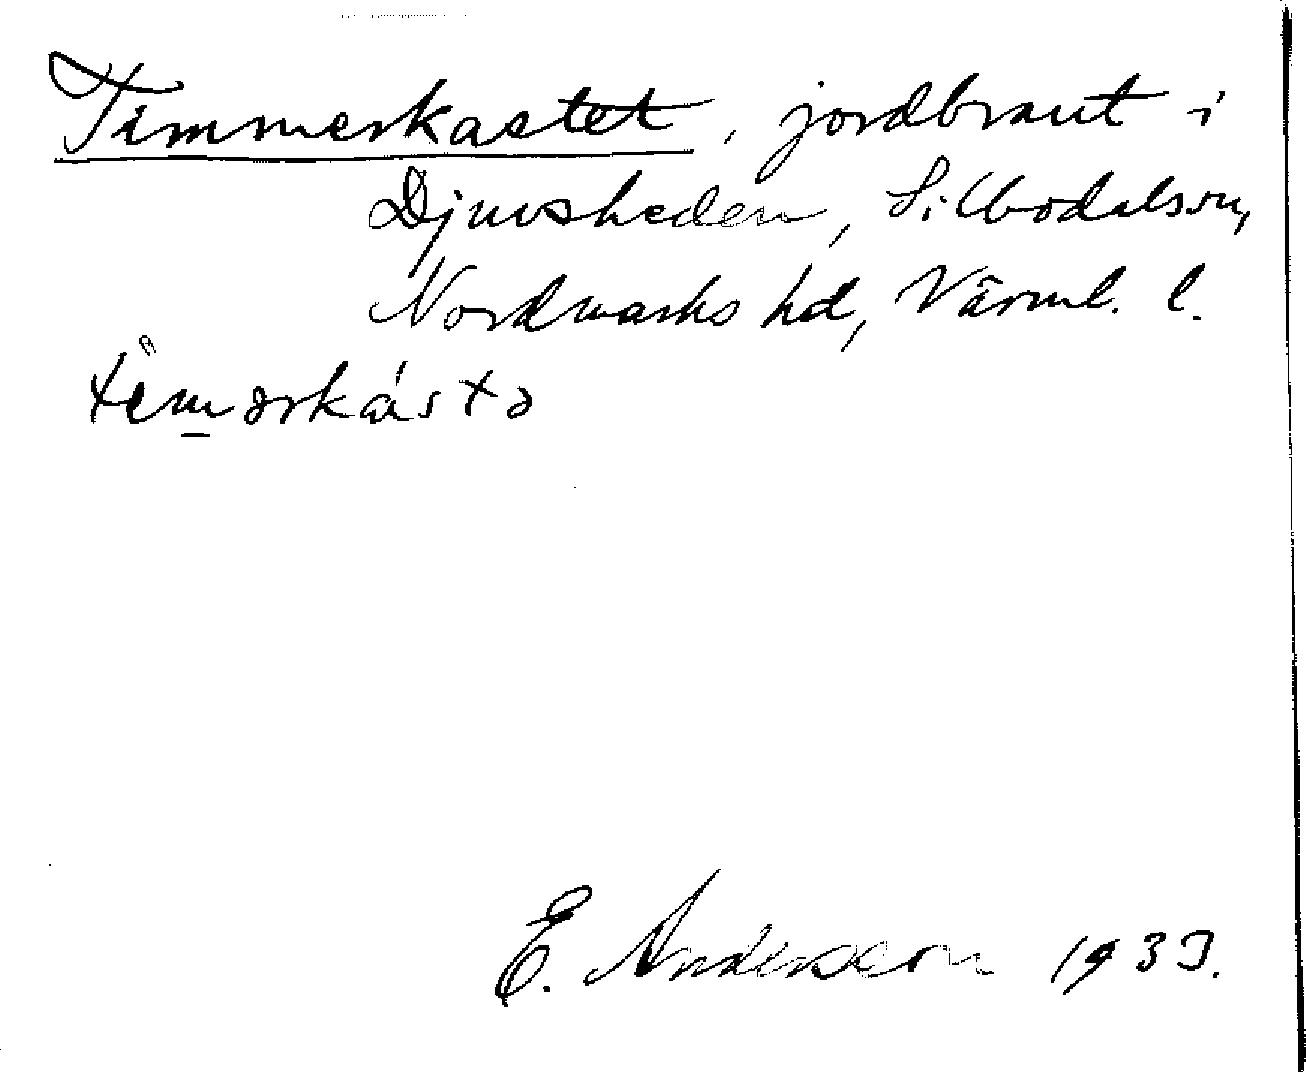 Timmerkastet, jordbrant i
Djuvsheden, Silbodals sn,
Nordmarks hd, Värml. l.
E. Andersson 1933.